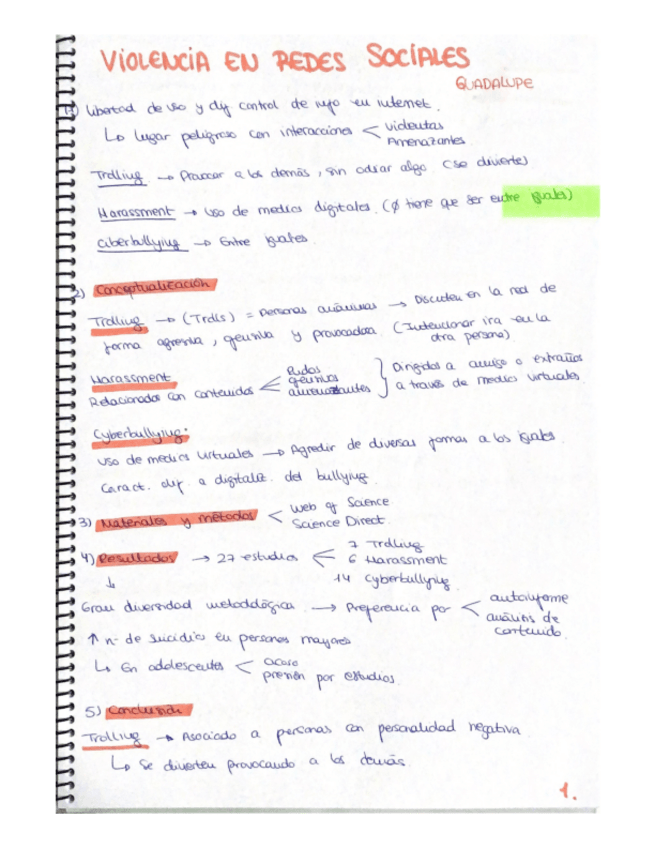 VIOLENCIA EN REDES SOCIALES
GUADALUPE
1) Libertad de uso y dif control de info en internet.
↳ Lugar peligroso con interacciones < violentas
Amenazantes.
Trolling → Provocar a los demás, sin odiar algo (se divierte)
Harassment → Uso de medios digitales. (∅ tiene que ser entre iguales)
Ciberbullying → Entre iguales.
2) Conceptualización
Trolling → (Trolls) = Personas anónimas → Discuten en la red de
forma agresiva, ofensiva y provocadora (Intencionar ira en la
otra persona)
Harassment
Relacionados con contenidos < Rudos
ofensivos
amenazantes } Dirigidos a amigo o extraños
a través de medios virtuales.
Cyberbullying:
Uso de medios virtuales → Agredir de diversas formas a los iguales.
Caract. dif. a digitaliz. del bullying.
3) Materiales y métodos < Web of Science
Science Direct.
4) Resultados → 27 estudios < 7 Trolling
6 Harassment
14 Cyberbullying.
↓
Gran diversidad metodológica. → Preferencia por < autoinforme
análisis de
contenido.
↑ nº de suicidios en personas mayores
↳ En adolescentes < acoso
presión por estudios.
5) Conclusión
Trolling → Asociado a personas con personalidad negativa.
↳ Se divierten provocando a los demás.
1.